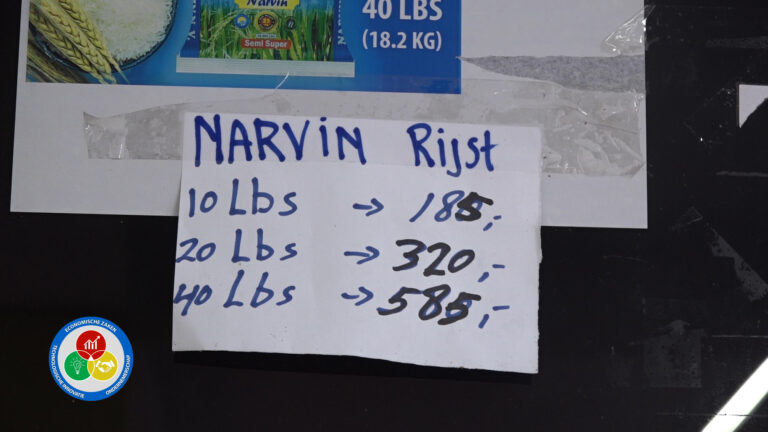 Narvin
Semi Super
40 LBS
(18.2 KG)
NARViN Rijst
10 Lbs → 185,-
20 Lbs → 320,-
40 Lbs → 585,-
ECONOMISCHE ZAKEN
ONDERNEMERSCHAP
TECHNOLOGISCHE INNOVATIE